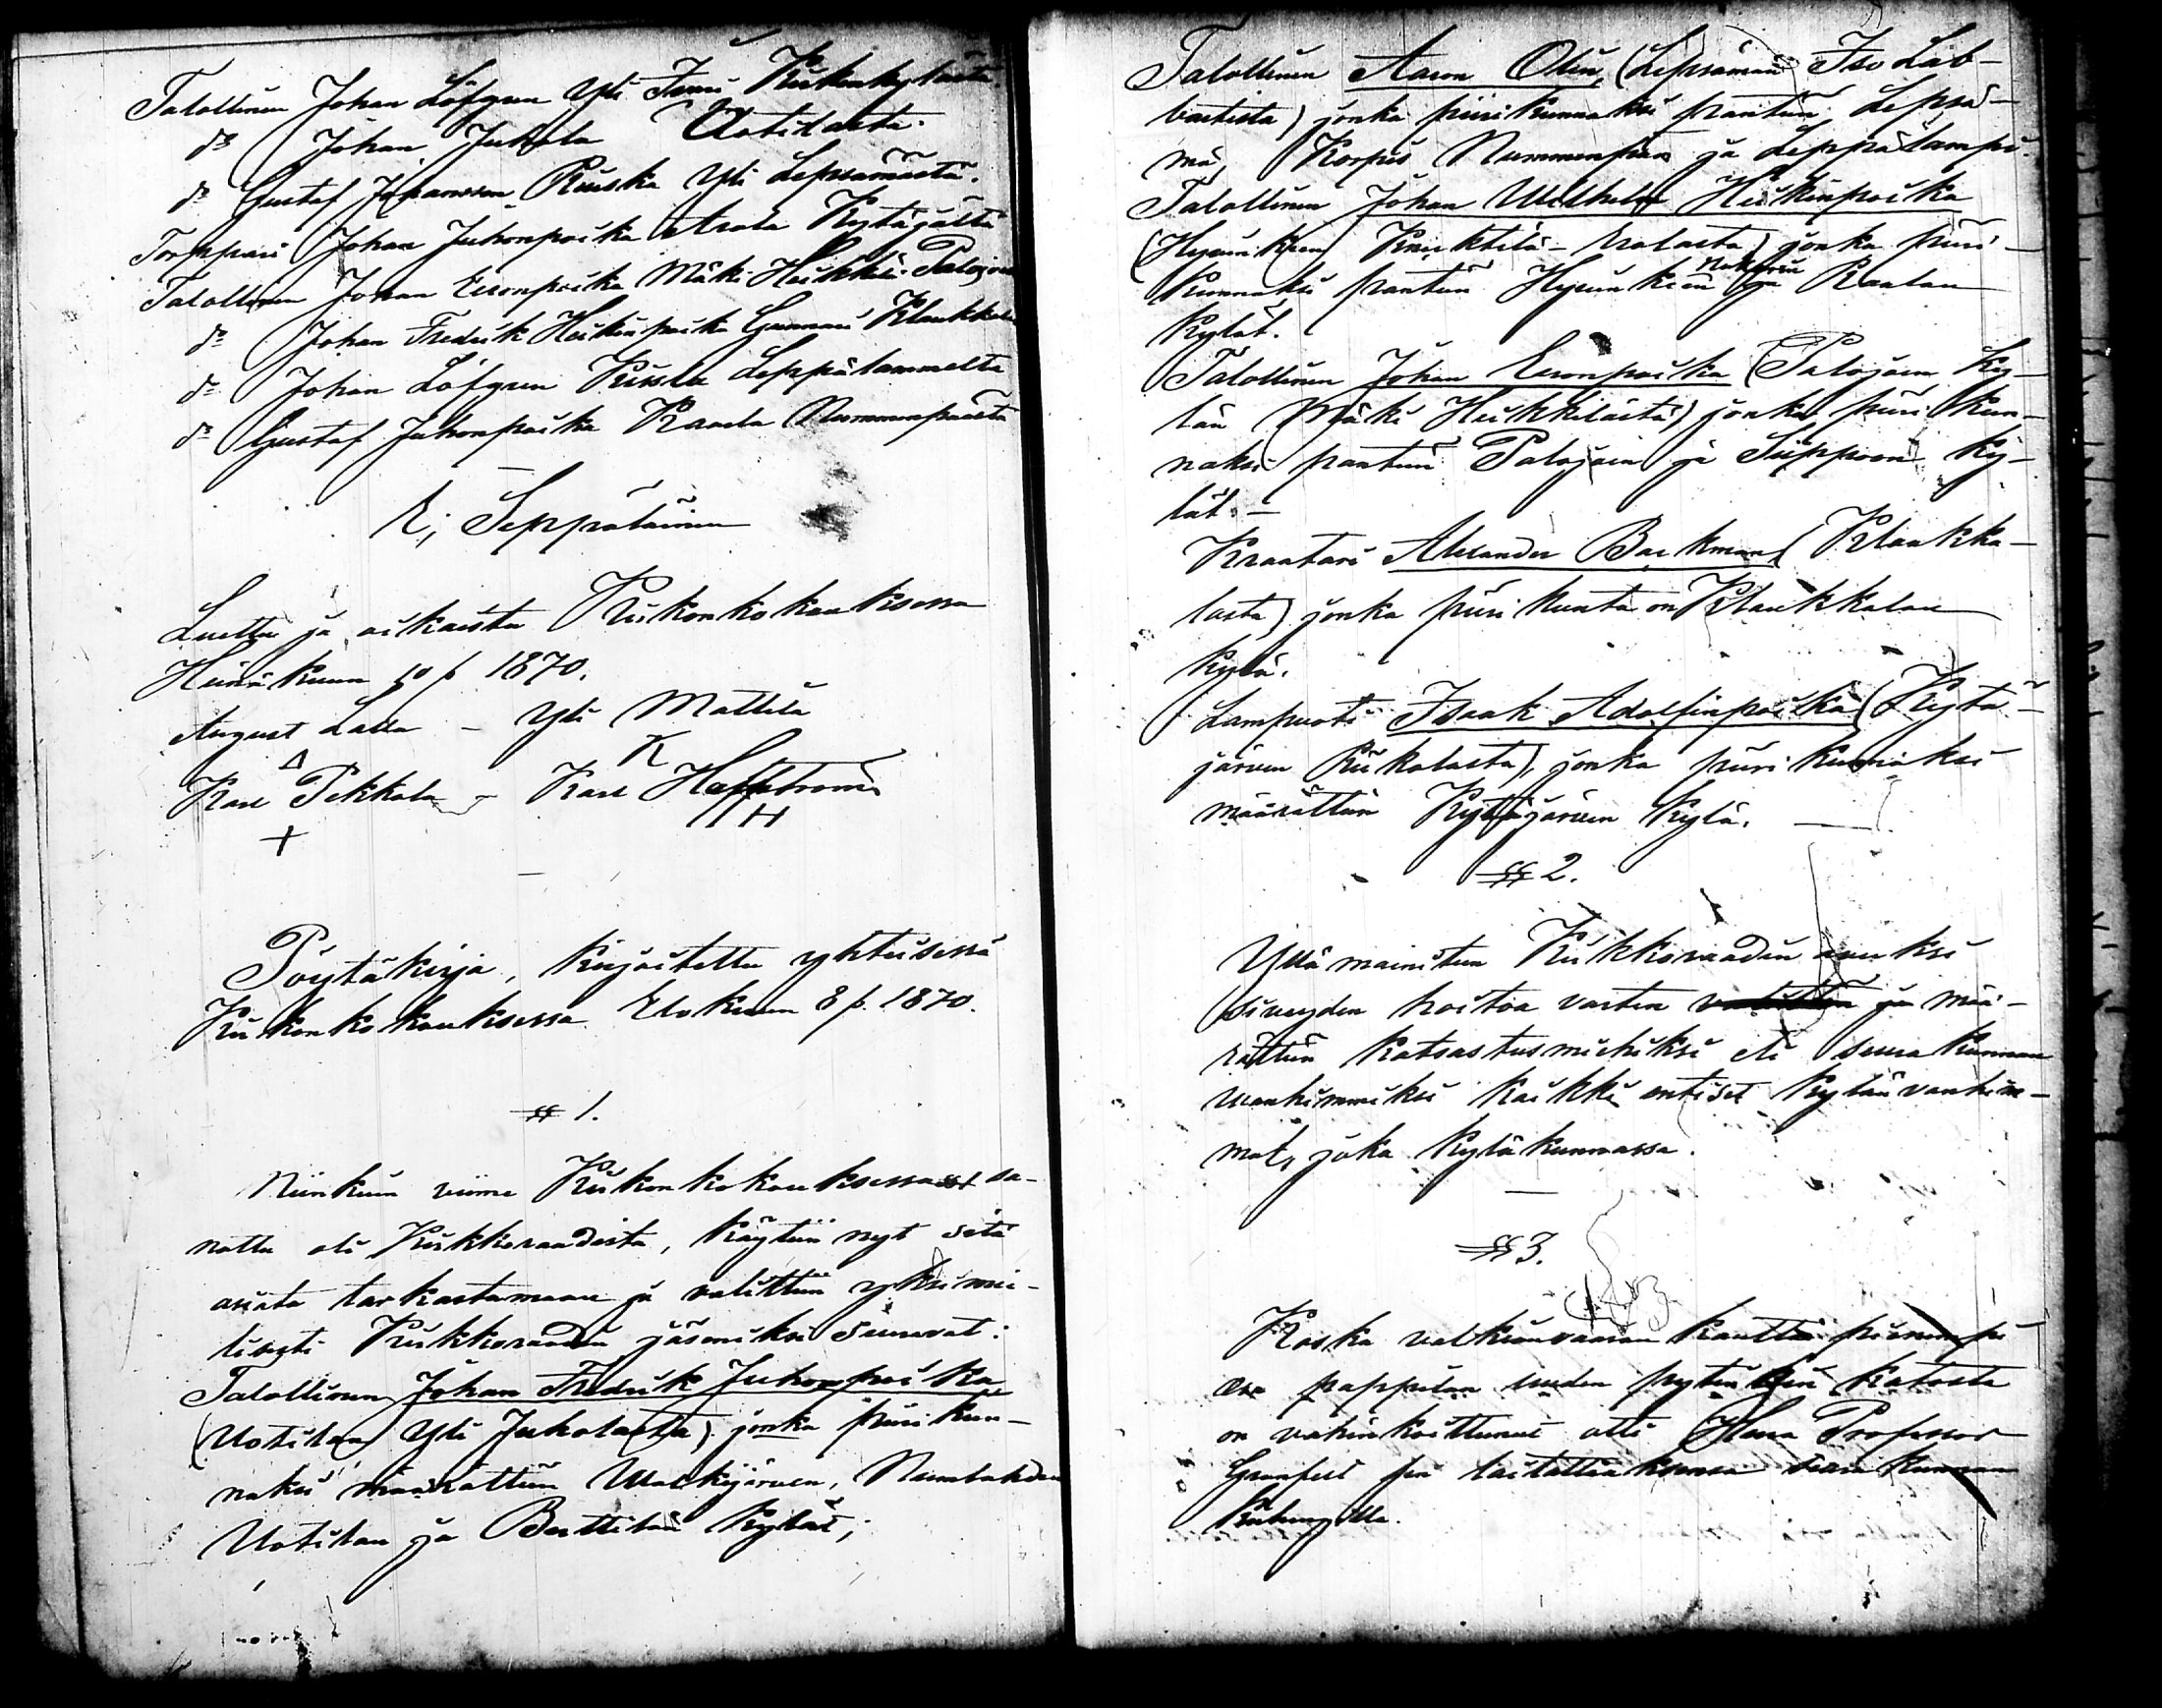 Talollinen Johan Löfgren Yli Jaari Kirkonkylästä.
do Johan Jukola Uotilasta.
do Gustaf Johansson Ruuska Yli Lepsämästä.
Torppari Johan Juhonpoika Arola Kytäjältä
Talollinen Johan Eeronpoika Mäki Heikkilä Palojoen
do Johan Fredrik Heikinpoika Gunnari Klaukkala
do Johan Löfgren Kissla Leppälammelta
do Gustaf Juhonpoika Raala Nummenpäästä
E; Seppäläinen
Luettu ja oikaistu Kirkonkokouksessa
Heinäkuun 10 p 1870.
August Lalla – Yli Mattila
Karl Pekkala – Karl Haffström
K
+ H
Pöytäkirja, kirjoitettu yhteisessä
Kirkonkokouksessa Elokuun 8 p. 1870.
§§ 1.
Niinkuin viime Kirkonkokouksessa sa-
nottu oli Kirkkoraadista, käytiin nyt sitä
asiata tarkastamaan ja valittiin yksimie-
lisesti Kirkkoraadin jäseniksi seuravat:
Talollinen Johan Fredrik Juhonpoika
(Uotilan Yli Jukolasta) jonka piirikun-
naksi määrättiin Walkjärven, Numlahden
Uotilan ja Berttilän kylät;
Talollinen Aaron Olin, (Lepsämän Iso Lab-
bartista) jonka piirikunnaksi pantiin Lepsä-
mä, Korpis Nummenpää ja Leppälampi.
Talollinen Johan Wilhelm Heikinpoika
(Hyvinkään Knicktilä-Erolasta) jonka piiri-
kunnaksi pantiin Hyvinkään ja Raalan
kylät.
Talollinen Johan Eeronpoika (Palojoen Ky-
län Mäki Heikkilästä) jonka piirikun-
naksi pantiin Palojoen ja Siippoon Ky-
lät. –
Kraatari Alexander Backman (Klaukka-
lasta) jonka piirikunta on Klaukkalan
Kylä.
Lampuoti Isaak Adolfinpoika (Kytä-
järven Kiikolasta), jonka piirikunnaksi
määrättiin Kytäjärven Kylä. –
§§ 2.
Yllä mainitun Kirkkoraadin avuksi
siveyden hoitoa varten valittiin ja mää-
rättiin Katsastusmiehiksi eli seurakunnan
wanhimmiksi kaikki entiset Kylän vanhim-
mat, joka kyläkunnassa.
§§ 3.
Koska valkiinvaaran kautta pienempi
osa pappilan uuden pytinkin katosta
on vahinkoittunut otti Herra Professor
Granfelt sen laitattaaksensa seurakunnan